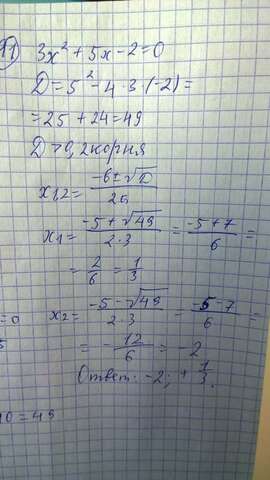 11) 3x² + 5x - 2 = 0
D = 5² - 4 · 3 · (-2) =
= 25 + 24 = 49
D > 0, 2 корня
x₁,₂ = (-b ± √D) / 2a
x₁ = (-5 + √49) / (2 · 3) = (-5 + 7) / 6 =
= 2/6 = 1/3
x₂ = (-5 - √49) / (2 · 3) = (-5 - 7) / 6 =
= -12/6 = -2
Ответ: -2; + 1/3.
= 0
0 = 49